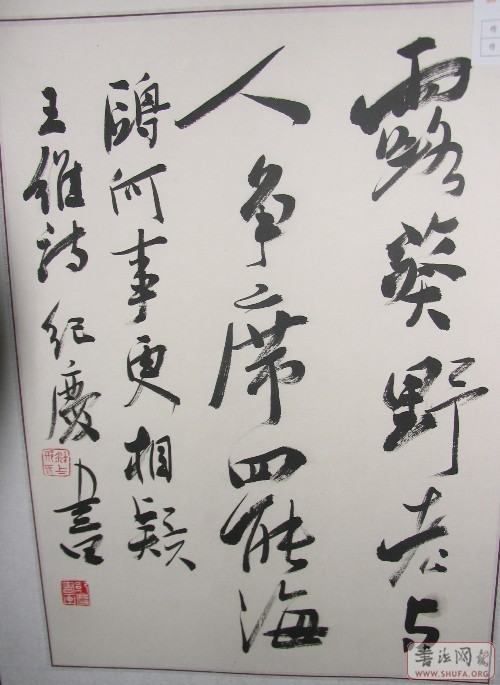 露葵野老与
人争席罢海
鷗何事更相疑
王维诗 纪庆书
書法网
WWW.SHUFA.ORG